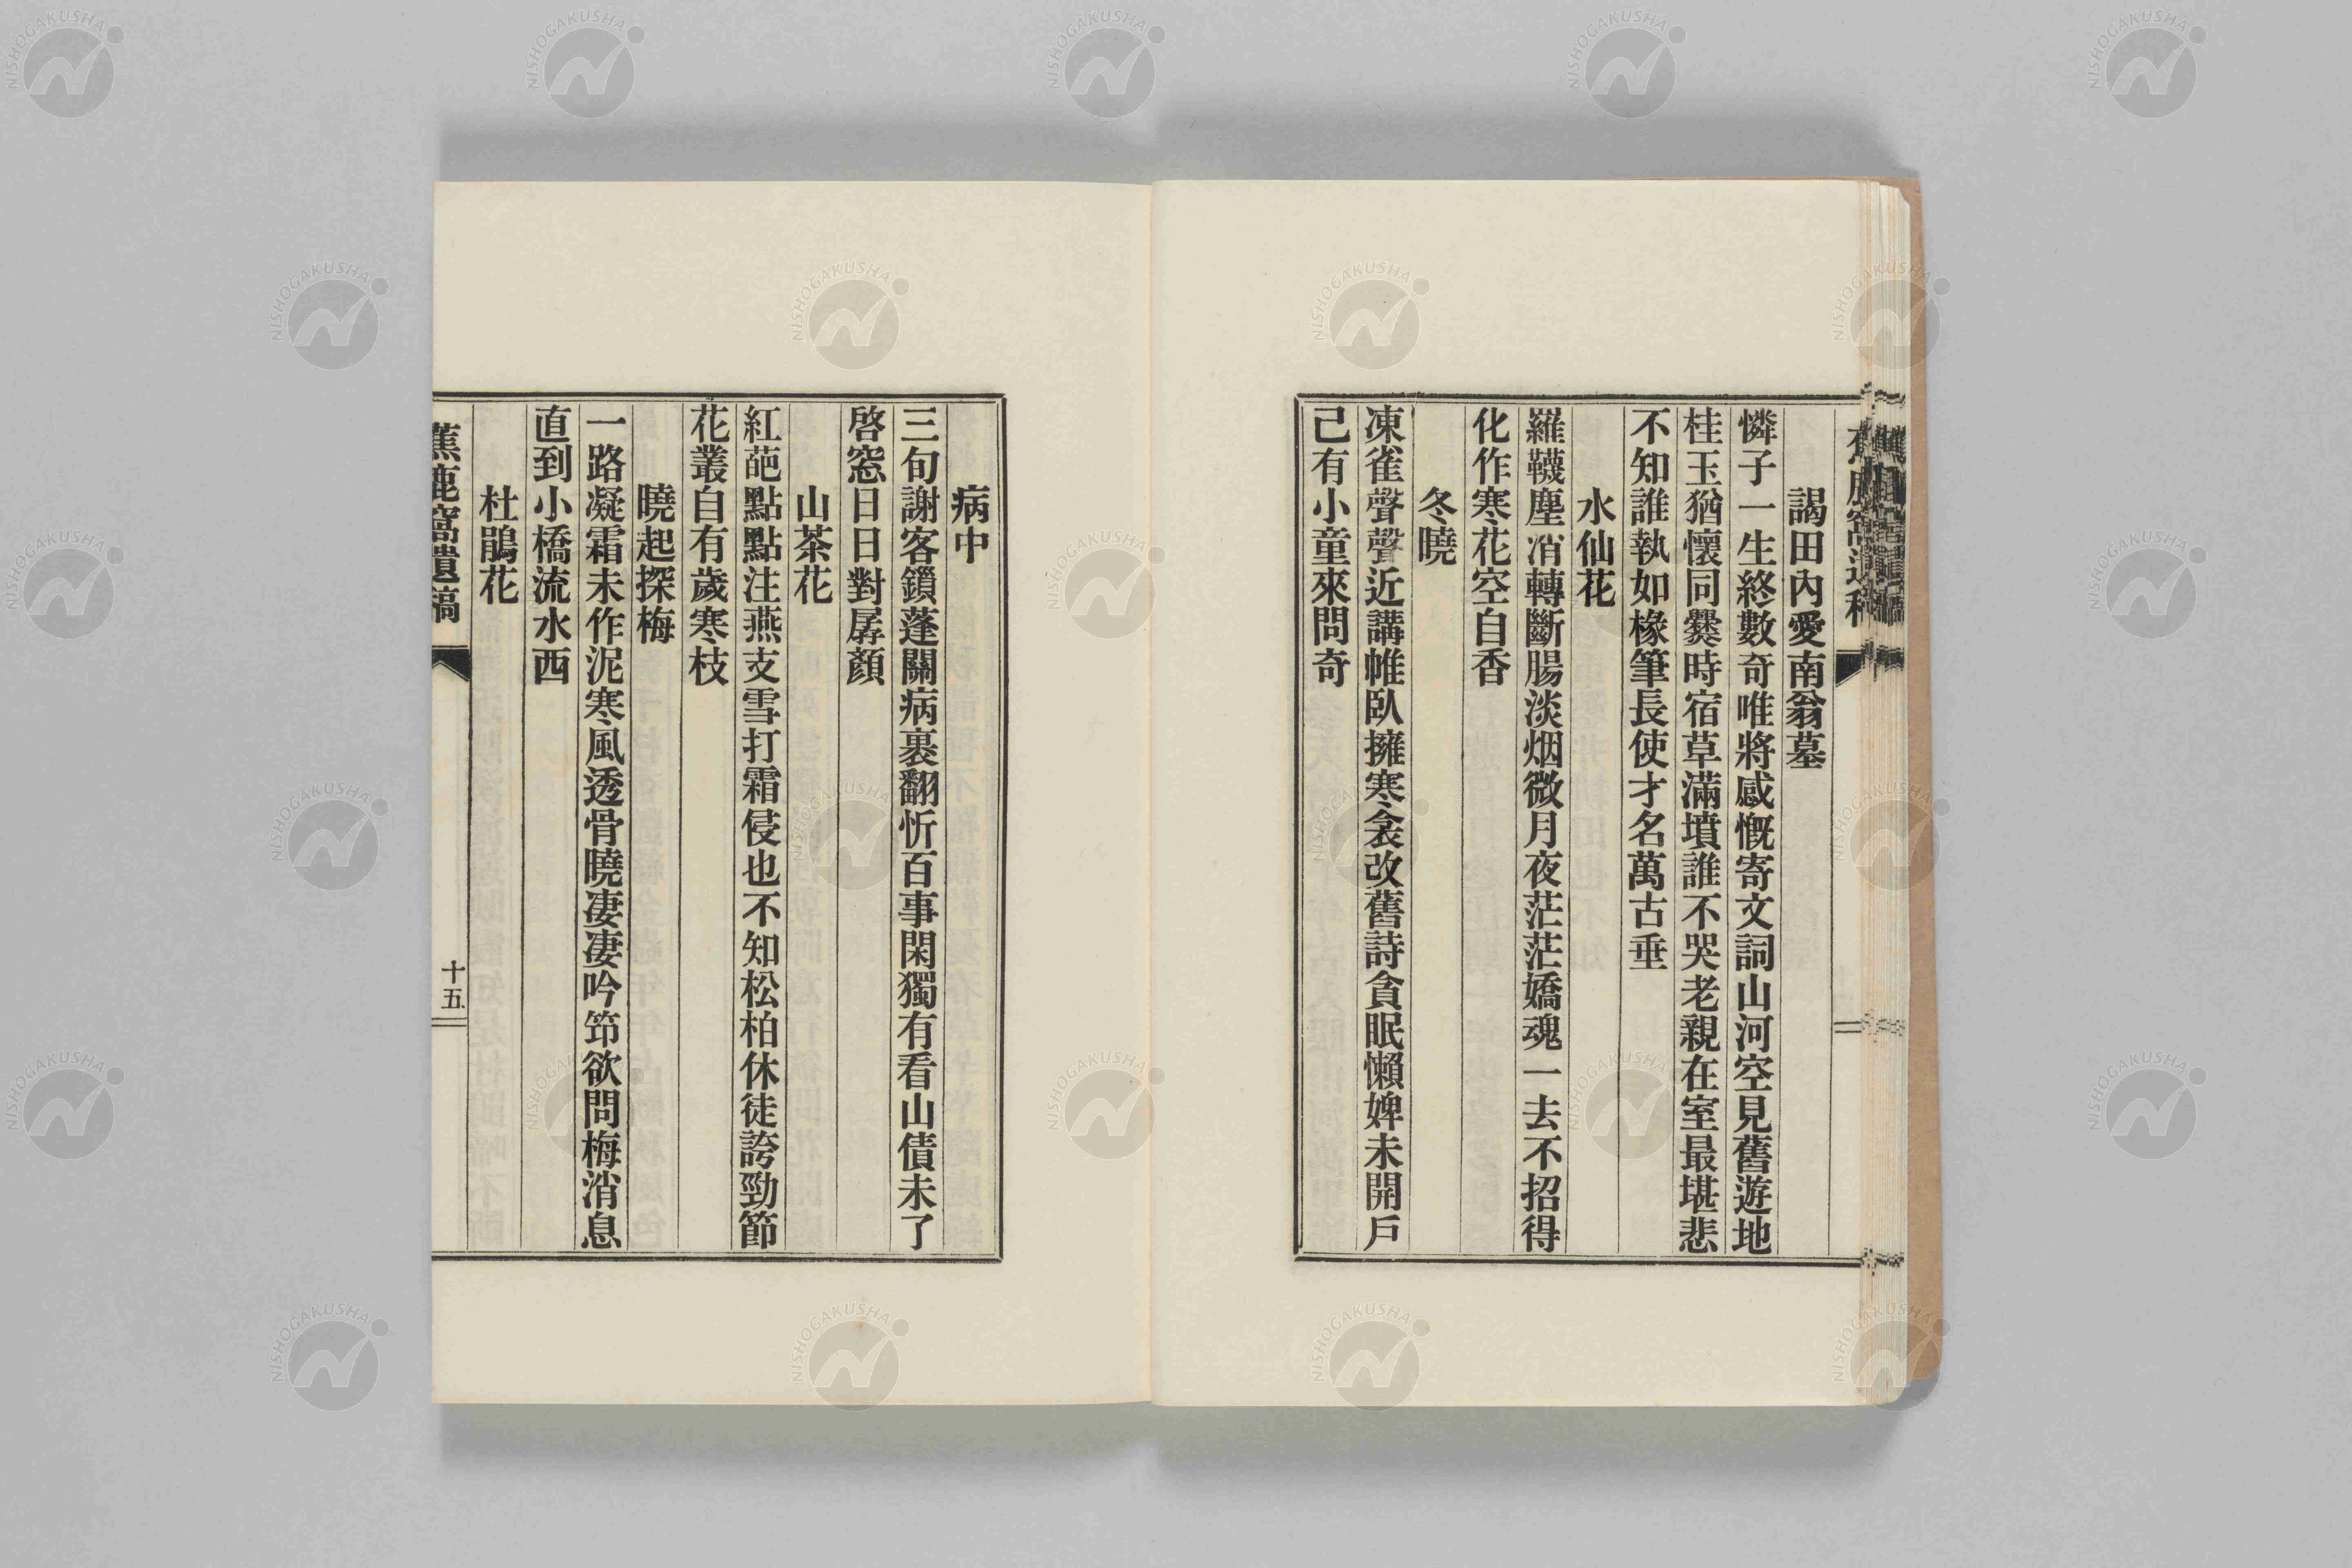 謁田內愛南翁墓
憐子一生終數奇唯將感慨寄文詞山河空見舊遊地
桂玉猶懷同爨時宿草滿墳誰不哭老親在室最堪悲
不知誰執如椽筆長使才名萬古垂
水仙花
羅韈塵消轉斷腸淡烟微月夜茫茫嬌魂一去不招得
化作寒花空自香
冬曉
凍雀聲聲近講帷臥擁寒衾改舊詩貪眠懶婢未開戶
己有小童來問奇
病中
三旬謝客鎖蓬關病裏翻忻百事閑獨有看山債未了
啓窓日日對孱顏
山茶花
紅葩點點注燕支雪打霜侵也不知松柏休徒誇勁節
花叢自有歲寒枝
曉起探梅
一路凝霜未作泥寒風透骨曉凄凄吟筇欲問梅消息
直到小橋流水西
杜鵑花
蕉鹿窩遺稿
十五
NISHOGAKUSHA